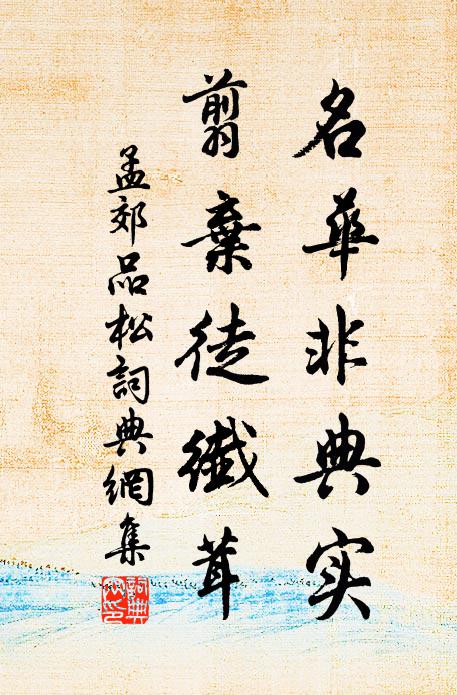 名華非典实
翦棄徒纖茸
孟郊品松詞典網集